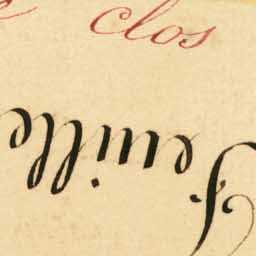 clos
Feuille